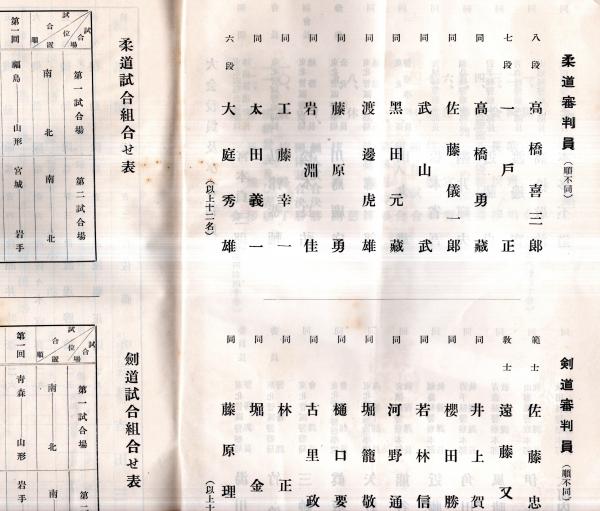 柔道審判員（順不同）
八段 高橋喜三郎
七段 一戸正
同 高橋勇藏
同 佐藤儀一郎
同 武山武
同 黑田元藏
同 渡邊虎雄
同 藤原勇
同 岩淵佳
同 工藤幸一
同 太田義一
六段 大庭秀雄
（以上十二名）
柔道試合組合せ表
試合場
試合位置
順
第一試合場 第二試合場
南 北 南 北
第一回 福島 山形 宮城 岩手
劍道審判員（順不同）
範士 佐藤忠
敎士 遠藤又
同 井上賀
同 櫻田勝
同 若林信
同 河野通
同 堀籠敬
同 樋口要
同 古里政
同 林正
同 堀金
同 藤原理
（以上十
劍道試合組合せ表
試合場
試合位置
順
第一試合場 第二
南 北 南
第一回 靑森 山形 岩手